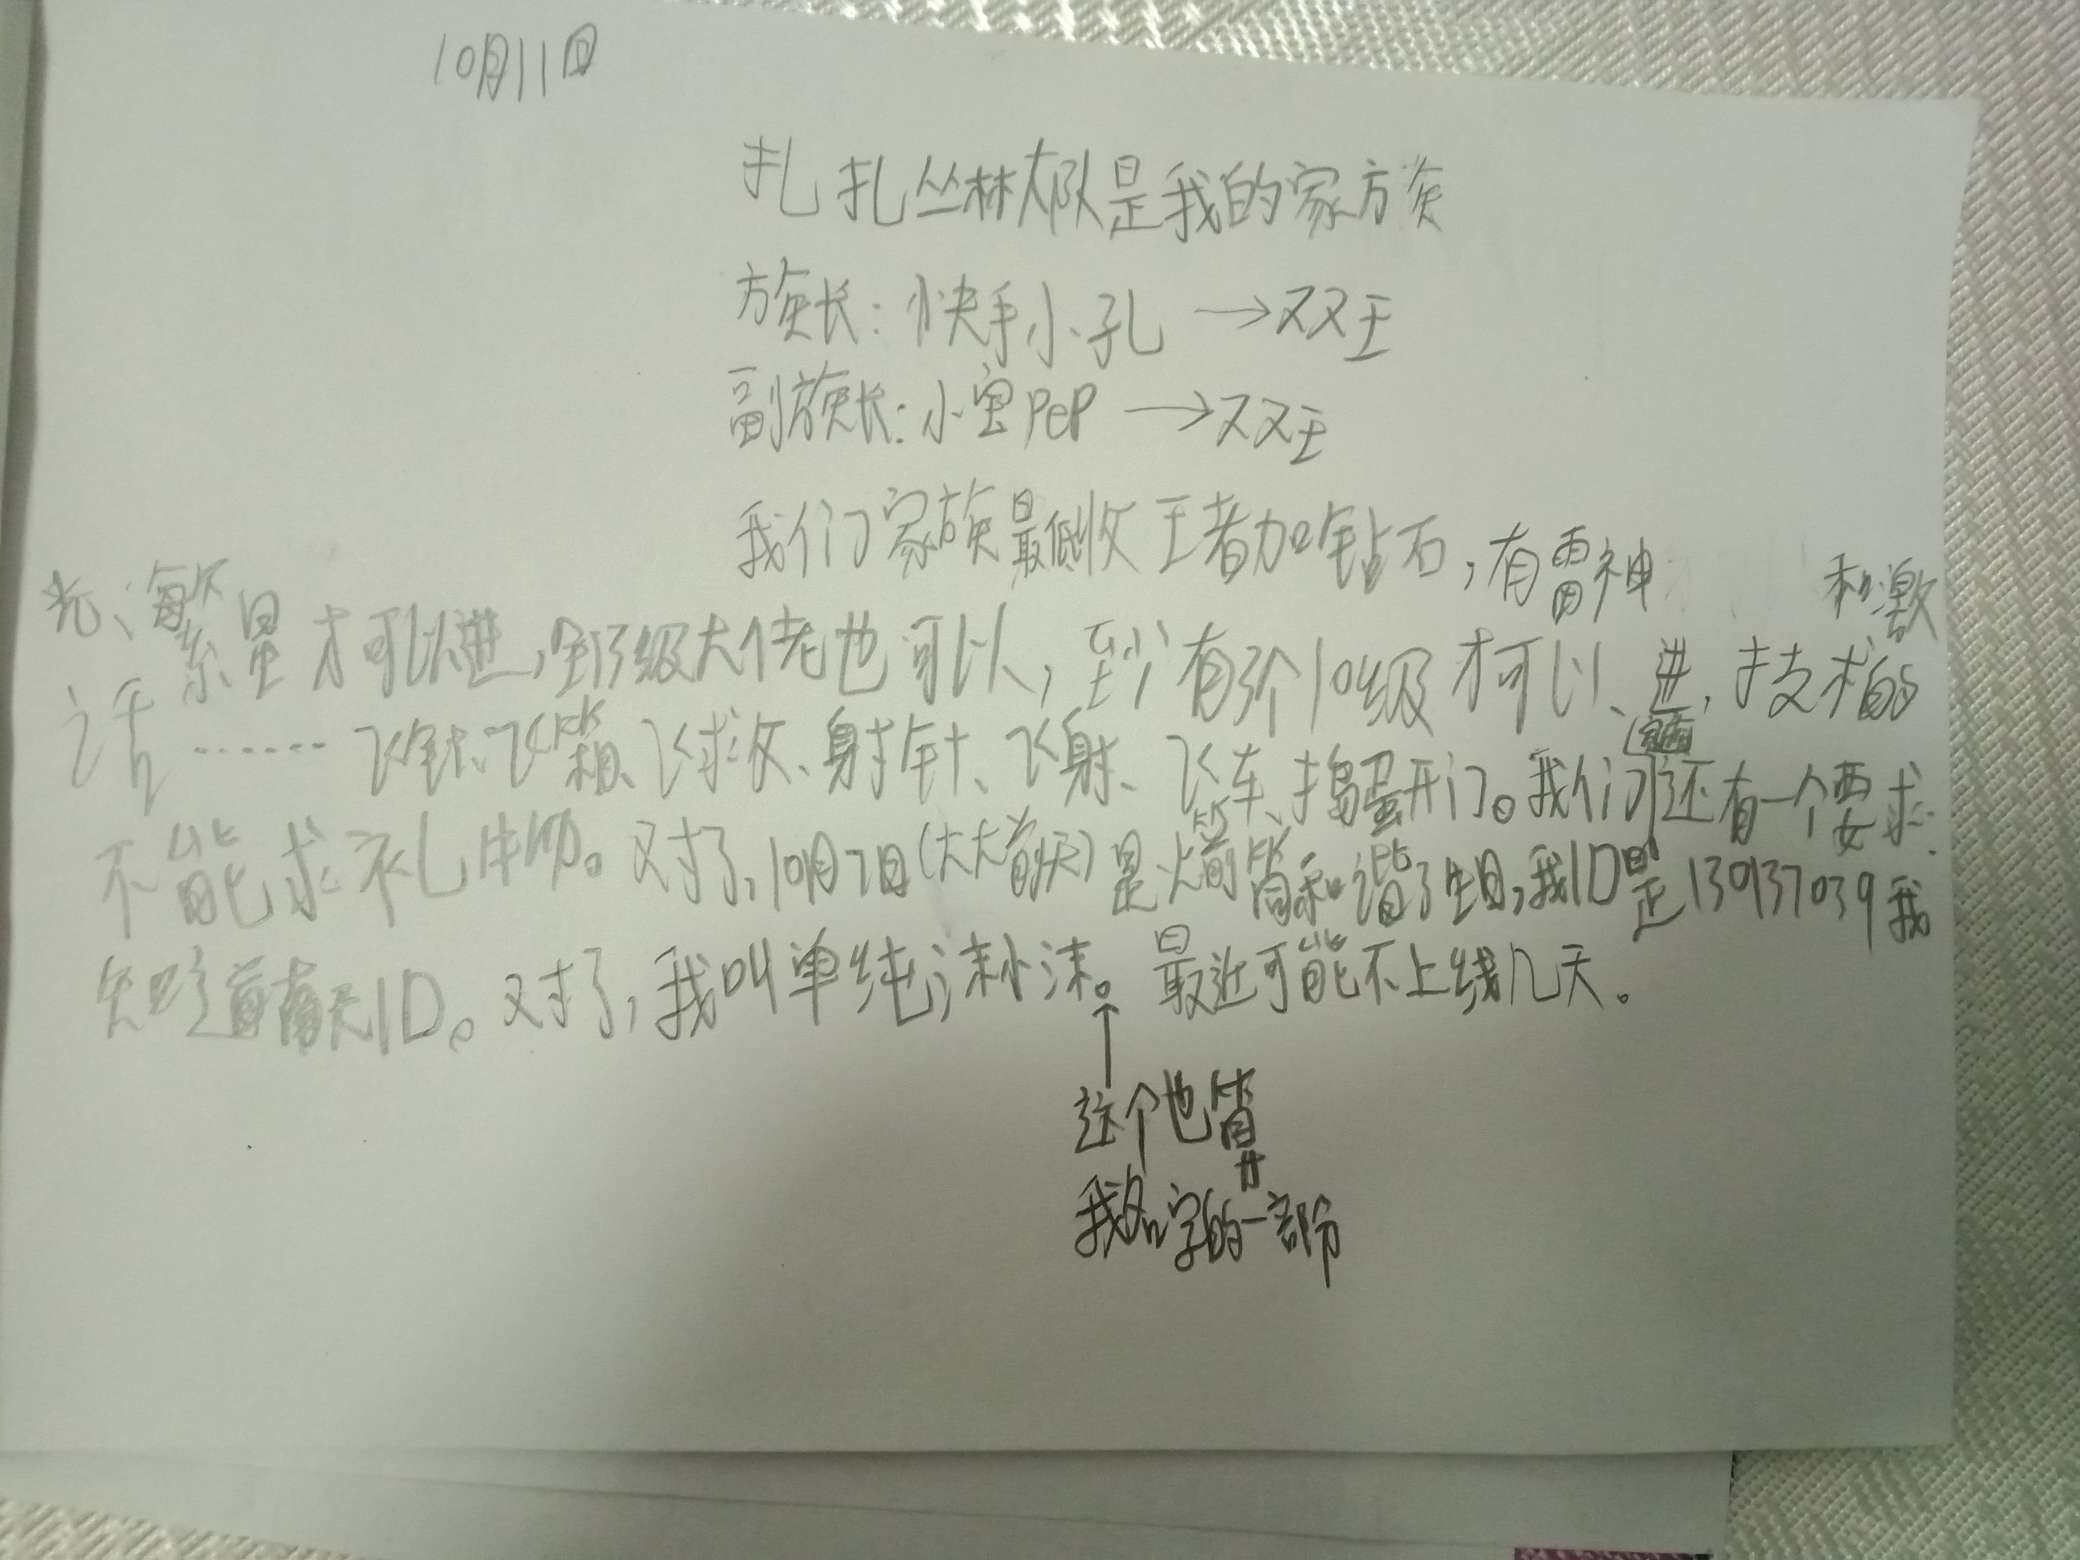 10月11日
扎扎丛林大队是我的家族
族长:快手小孔→双王
副族长:小宝PeP→双王
我们家族最低收王者加钻石,有雷神和激
光、繁星才可以进,全13级大佬也可以,至少有3个10级才可以进,技术的
话……飞针、飞箱、飞救、射针、飞射、飞车、捣蛋开门。我们还有一个要求:
不能求礼物。又对了,10月7日(大大前天)是火箭筒和谐了生日,我ID是13937039我
知道有无ID。又对了,我叫单纯沫小沫。最近可能不上线几天。
↑
这个也算
我名字的一部份